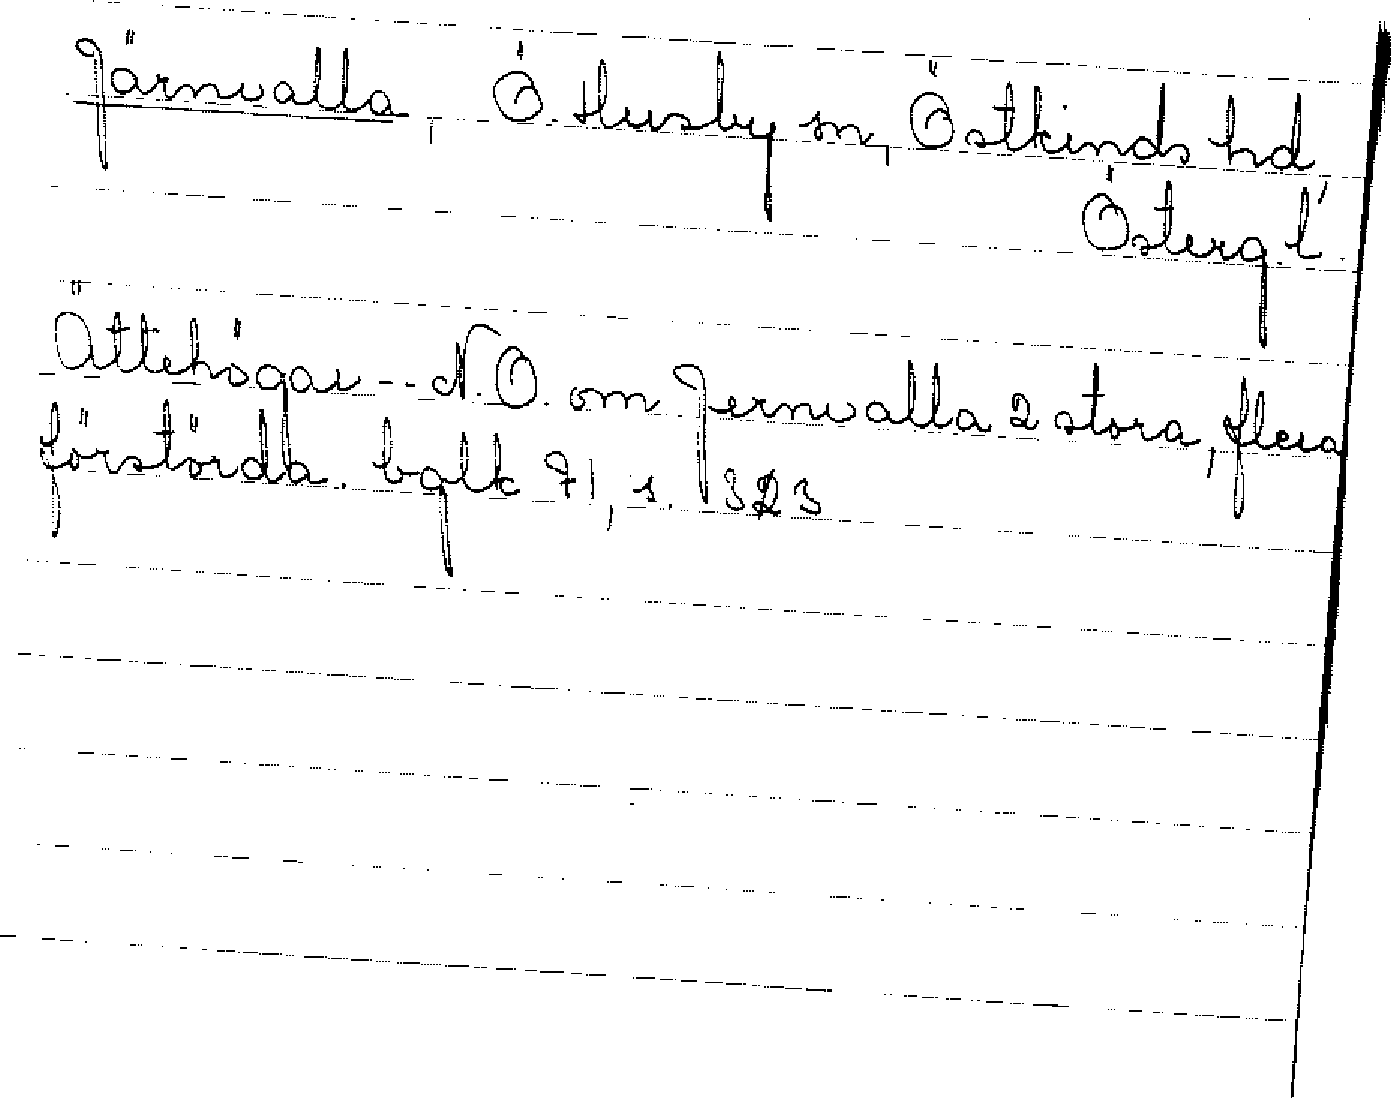 Järnvalla, Ö. Husby sn, Östkinds hd,
Österg. l
Ättehögar -- N.Ö. om Jernvalla 2 stora, flera
förstörda. bglk 71, s. 323